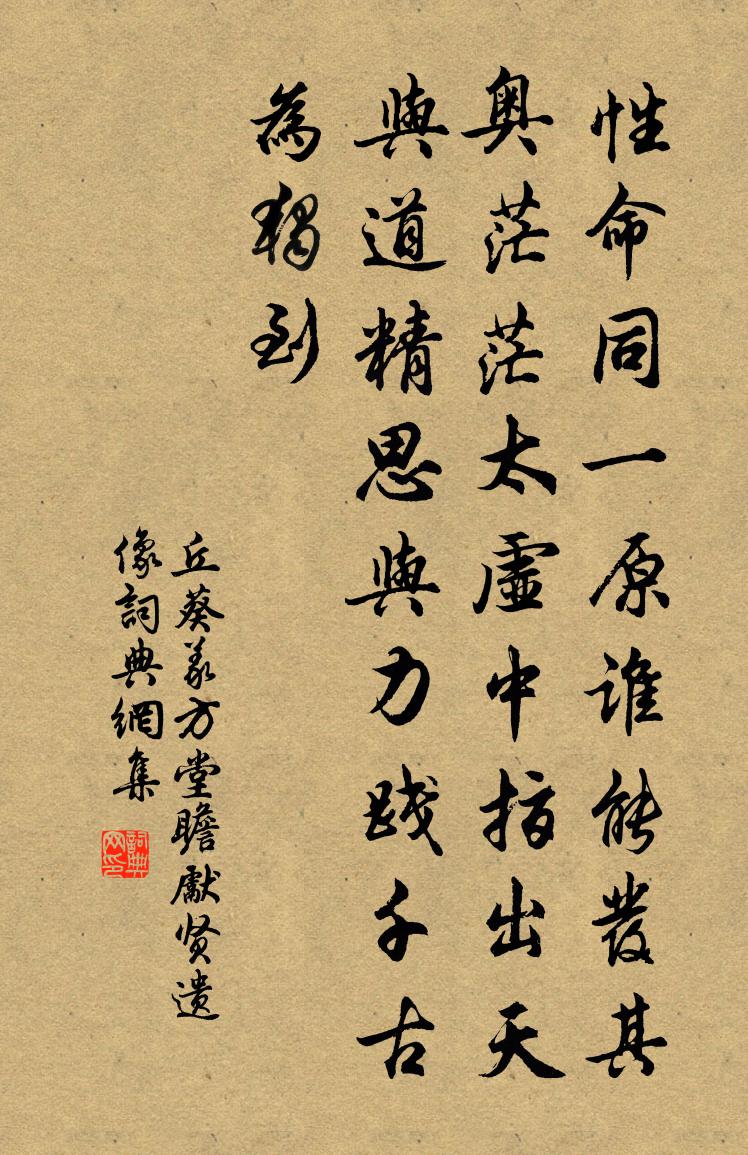 性命同一原谁能發其
奥茫茫太虛中指出天
與道精思與力踐千古
為獨到
丘葵義方堂瞻獻贤遗
像詞典網集
詞典网印